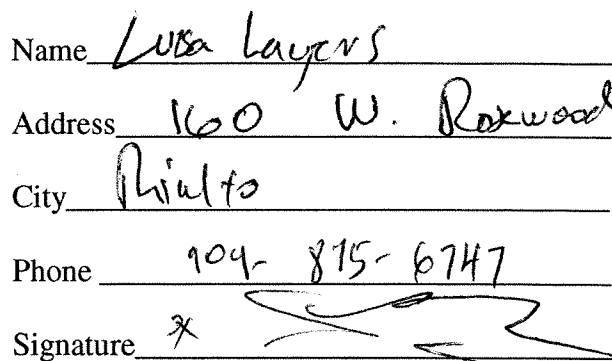 Name Luisa Layers
Address 160 W. Roxwood
City Rialto
Phone 909- 875- 6747
Signature x